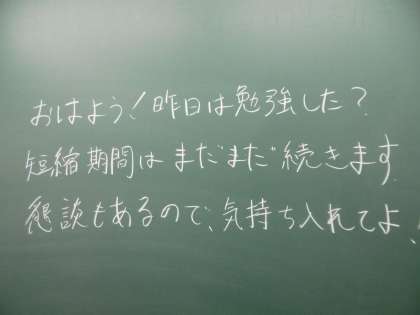 おはよう!昨日は勉強した?
短縮期間はまだまだ続きます
懇談もあるので、気持ち入れてよ